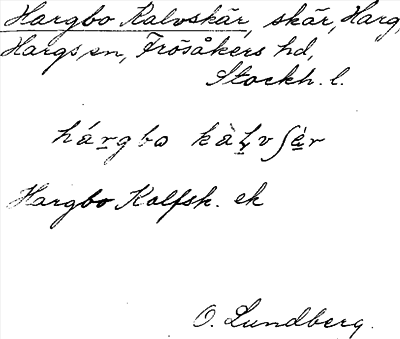 Hargbo Kalvskär, skär, Harg,
Hargs sn, Frösåkers hd,
Stockh. l.
hárgbo kàl̥vʃæ̀r
Hargbo Kalfsk. ek
O. Lundberg.